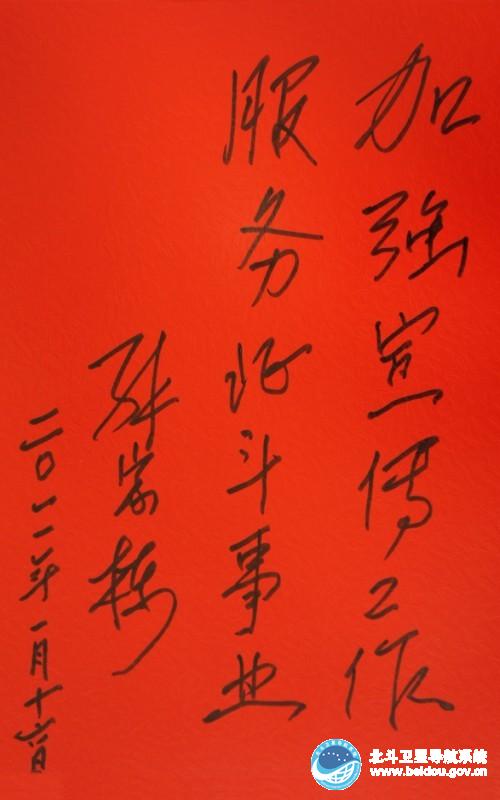 加强宣传工作
服务北斗事业
孙家栋
二〇一一年一月十六日
北斗卫星导航系统
www.beidou.gov.cn